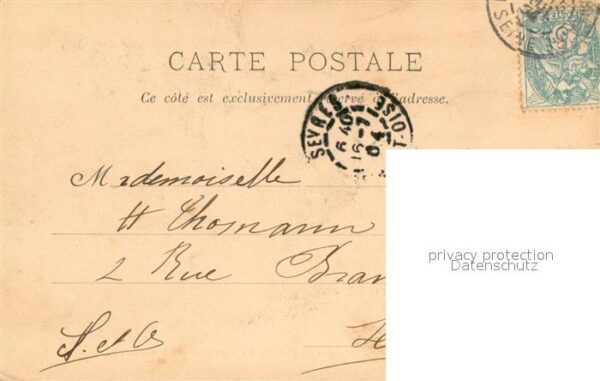 CARTE POSTALE
Ce côté est exclusivement réservé à l'adresse.
SEVRES
6 40
16 - 7
04
S. ET OISE
SEINE
Mademoiselle
H Thomann
2 Rue Bran
S. et O.
privacy protection
Datenschutz